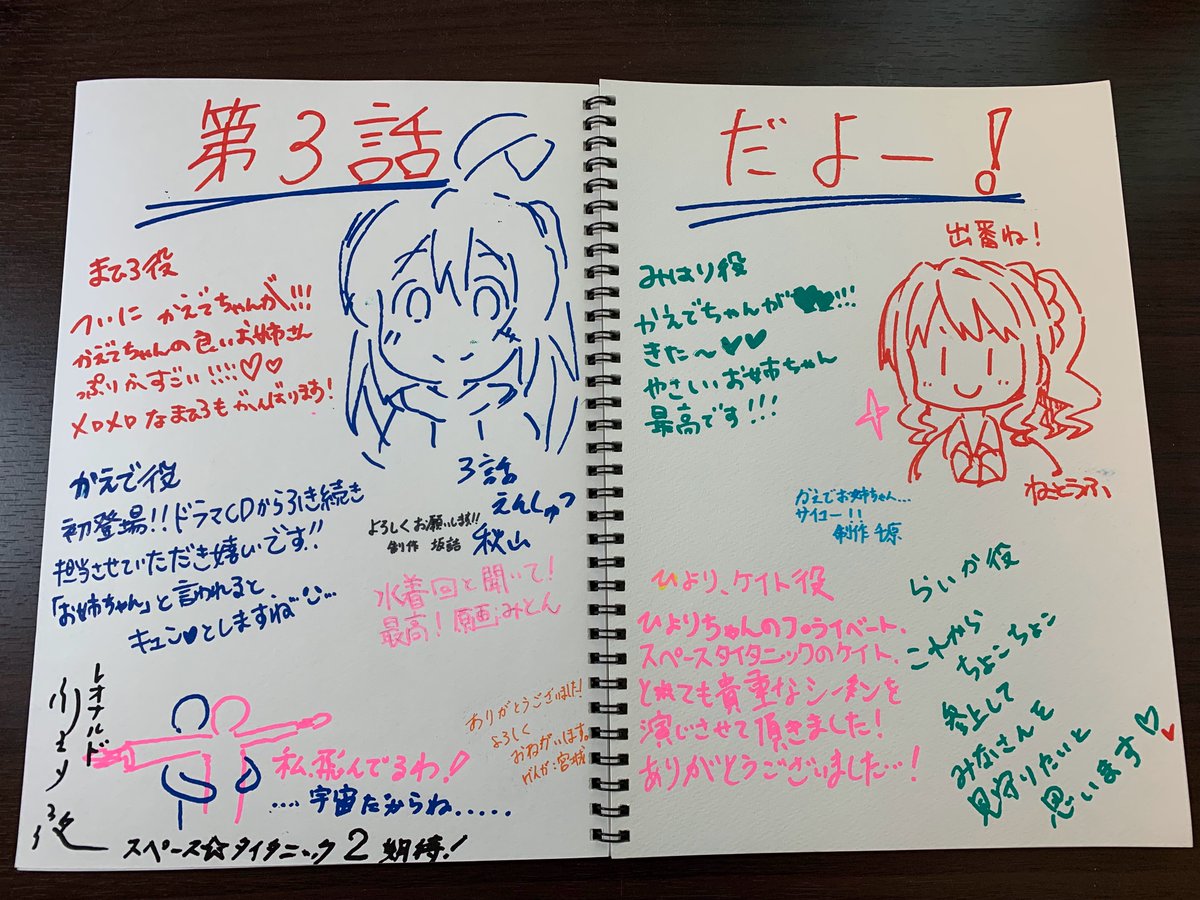 第3話
だよー!
まひろ役
ついに かえでちゃんが!!!
かえでちゃんの良いお姉さん
っぷりがすごい!!!!♡♡
メロメロなまひろもがんばります!
かえで役
初登場!!ドラマCDから引き続き
担当させていただき嬉しいです!!
「お姉ちゃん」と言われると、
キュン♥としますね
3話
えんしゅつ
秋山
よろしくお願いします!!
制作 坂詰
水着回と聞いて!
最高!原画みとん
レオナルド
役
私、飛んでるわ!
....宇宙だからね.....
スペース☆タイタニック2 期待!
ありがとうございました!
よろしく
おねがいします。
げんが:宮城
みはり役
かえでちゃんが!!!
きた〜♥♥
やさしいお姉ちゃん
最高です!!!
出番ね!
ねことうふ
かえでお姉ちゃん...
サイコー!!
制作 千原
ひより、ケイト役
ひよりちゃんのプライベート、
スペースタイタニックのケイト、
とても貴重なシーンを
演じさせて頂きました!
ありがとうございました…!
らいか役
これから
ちょこちょこ
参上して
みなさんを
見守りたいと
思います♡♥